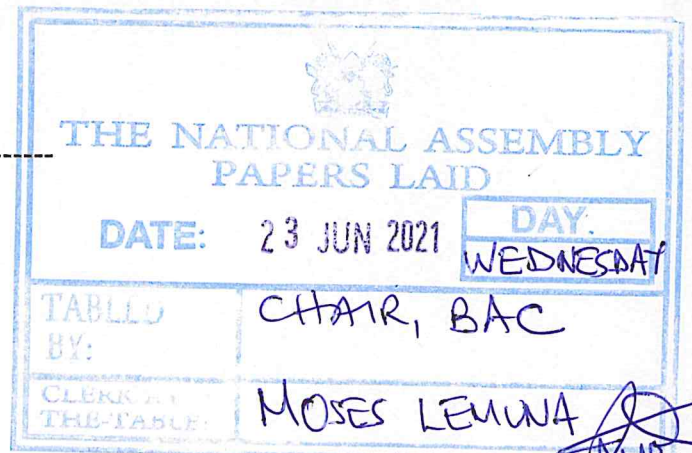 THE NATIONAL ASSEMBLY
PAPERS LAID
DATE: 23 JUN 2021 DAY:
WEDNESDAY
TABLED BY: CHAIR, BAC
CLERK AT THE-TABLE: MOSES LEMUNA